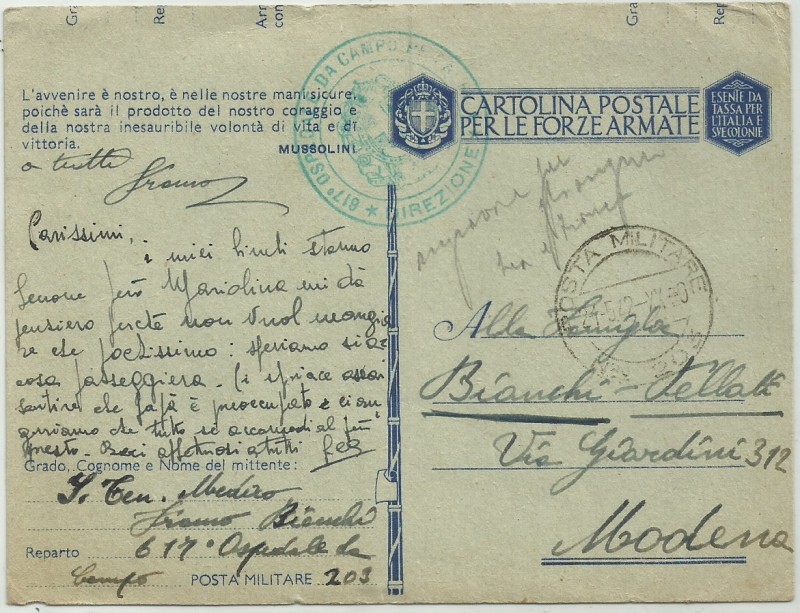 Gra
Re
Arma
con
Gra
Re
L'avvenire è nostro, è nelle nostre mani sicure,
poichè sarà il prodotto del nostro coraggio e
della nostra inesauribile volontà di vita e di
vittoria.
MUSSOLINI
a tutti
Franco
Carissimi,
i miei bimbi stanno
benone però Mariolina mi dà
pensiero perchè non vuol mangia
re che pochissimo: speriamo sia
cosa passeggiera. Ci spiace assai
sentire che papà è preoccupato e ci au
guriamo che tutto si accomodi al più
presto. Baci affettuosi a tutti
Grado, Cognome e Nome del mittente:
S. Ten. Medico
Franco Bianchi
Reparto 617° Ospedale da
Campo POSTA MILITARE 203
617° OSPEDALE DA CAMPO
DIREZIONE
CARTOLINA POSTALE
PER LE FORZE ARMATE
ESENTE DA
TASSA PER
L'ITALIA E
SVE COLONIE
per
POSTA MILITARE
Alla Famiglia
Bianchi - Pellati
Via Giardini 312
Modena